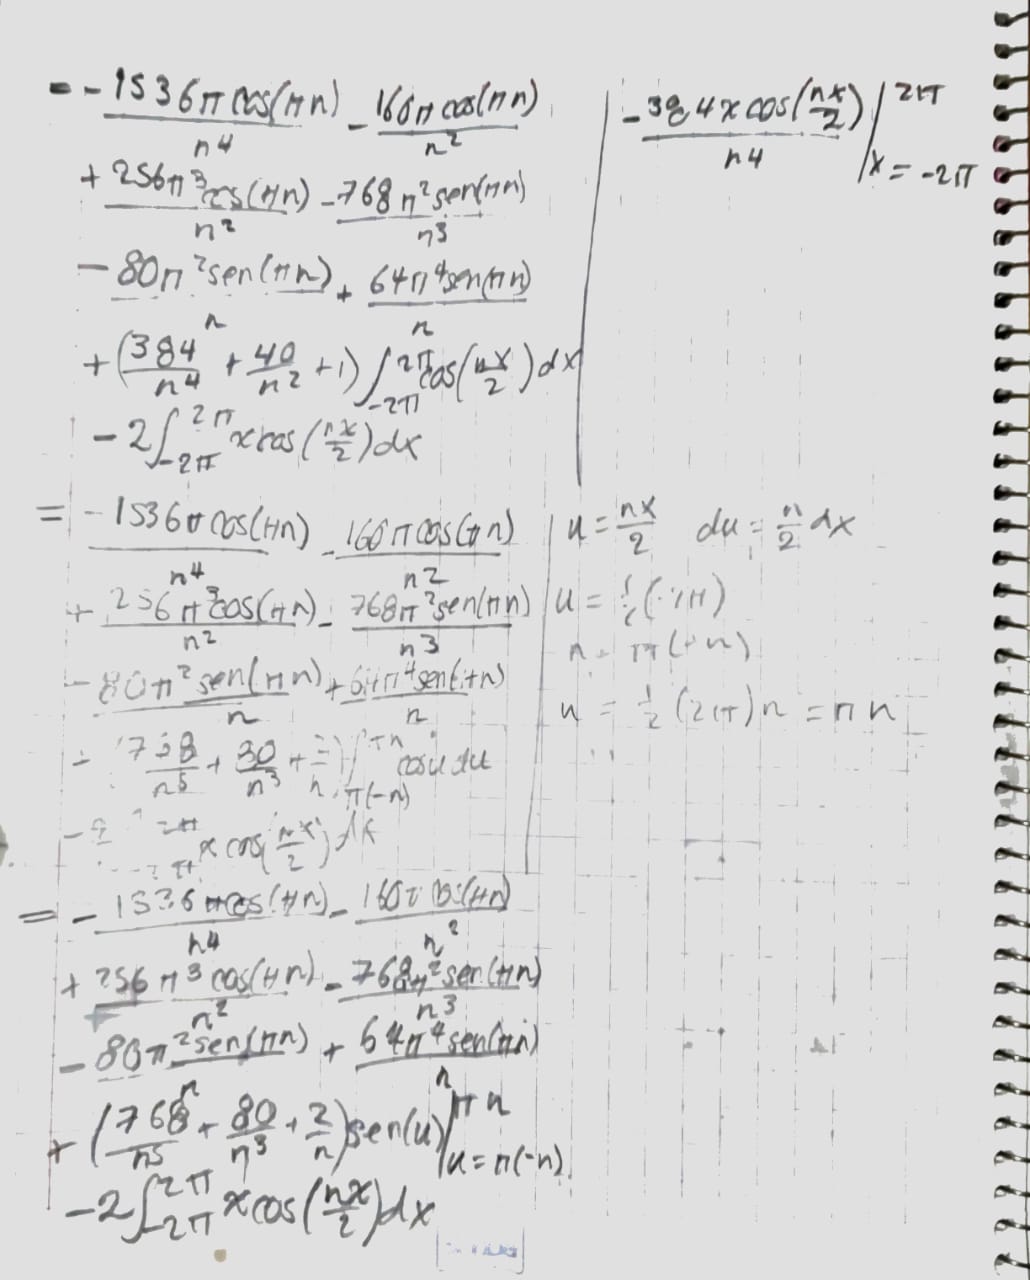 = - 1536π cos(πn)/n4 - 160π cos(πn)/n2
+ 256π3 cos(πn)/n2 - 768π2 sen(πn)/n3
- 80π2 sen(πn)/n + 64π4 sen(πn)/n
+ (384/n4 + 40/n2 + 1) ∫-2π 2π cos(nx/2) dx
- 2 ∫-2π 2π x cos(nx/2) dx
- 384x cos(nx/2)/n4 | 2π x = -2π
= - 1536π cos(πn)/n4 - 160π cos(πn)/n2
+ 256π3 cos(πn)/n2 - 768π2 sen(πn)/n3
- 80π2 sen(πn)/n + 64π4 sen(πn)/n
/n5 + /n3 + /n) ∫π(-n) πn cos u du
x cos(nx/2) dx
u = nx/2 du = n/2 dx
u =
π(-n)
u = 1/2 (2π)n = πn
= - 1536π cos(πn)/n4 - 160π cos(πn)/n2
+ 256π3 cos(πn)/n2 - 768π2 sen(πn)/n3
- 80π2 sen(πn)/n + 64π4 sen(πn)/n
+ (768/n5 + 80/n3 + 2/n) sen(u) | πn u = π(-n)
- 2 ∫-2π 2π x cos(nx/2) dx